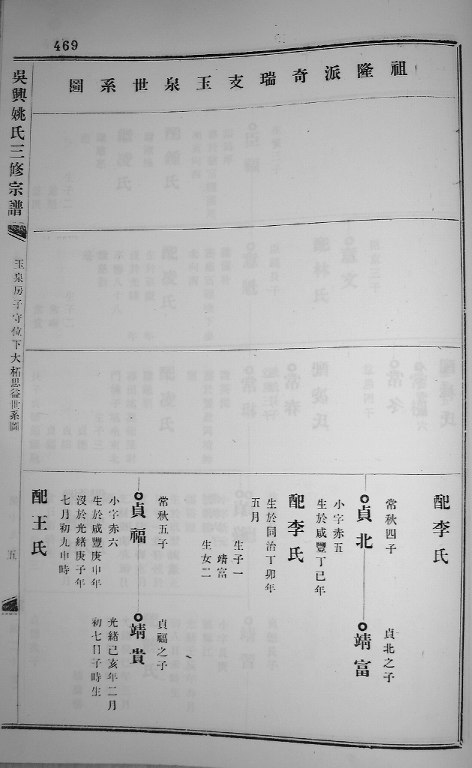 469
祖隆派奇瑞支玉泉世系圖
吳興姚氏三修宗譜
玉泉房子守位下大柘思益世系圖
五
配李氏
常秋四子
貞北
小字赤五
生於咸豐丁巳年
貞北之子
靖富
配李氏
生於同治丁卯年
五月
生子一
靖富
生女二
常秋五子
貞福
小字赤六
生於咸豐庚申年
沒於光緒庚子年
七月初九申時
貞福之子
靖貴
光緒己亥年二月
初七日子時生
配王氏